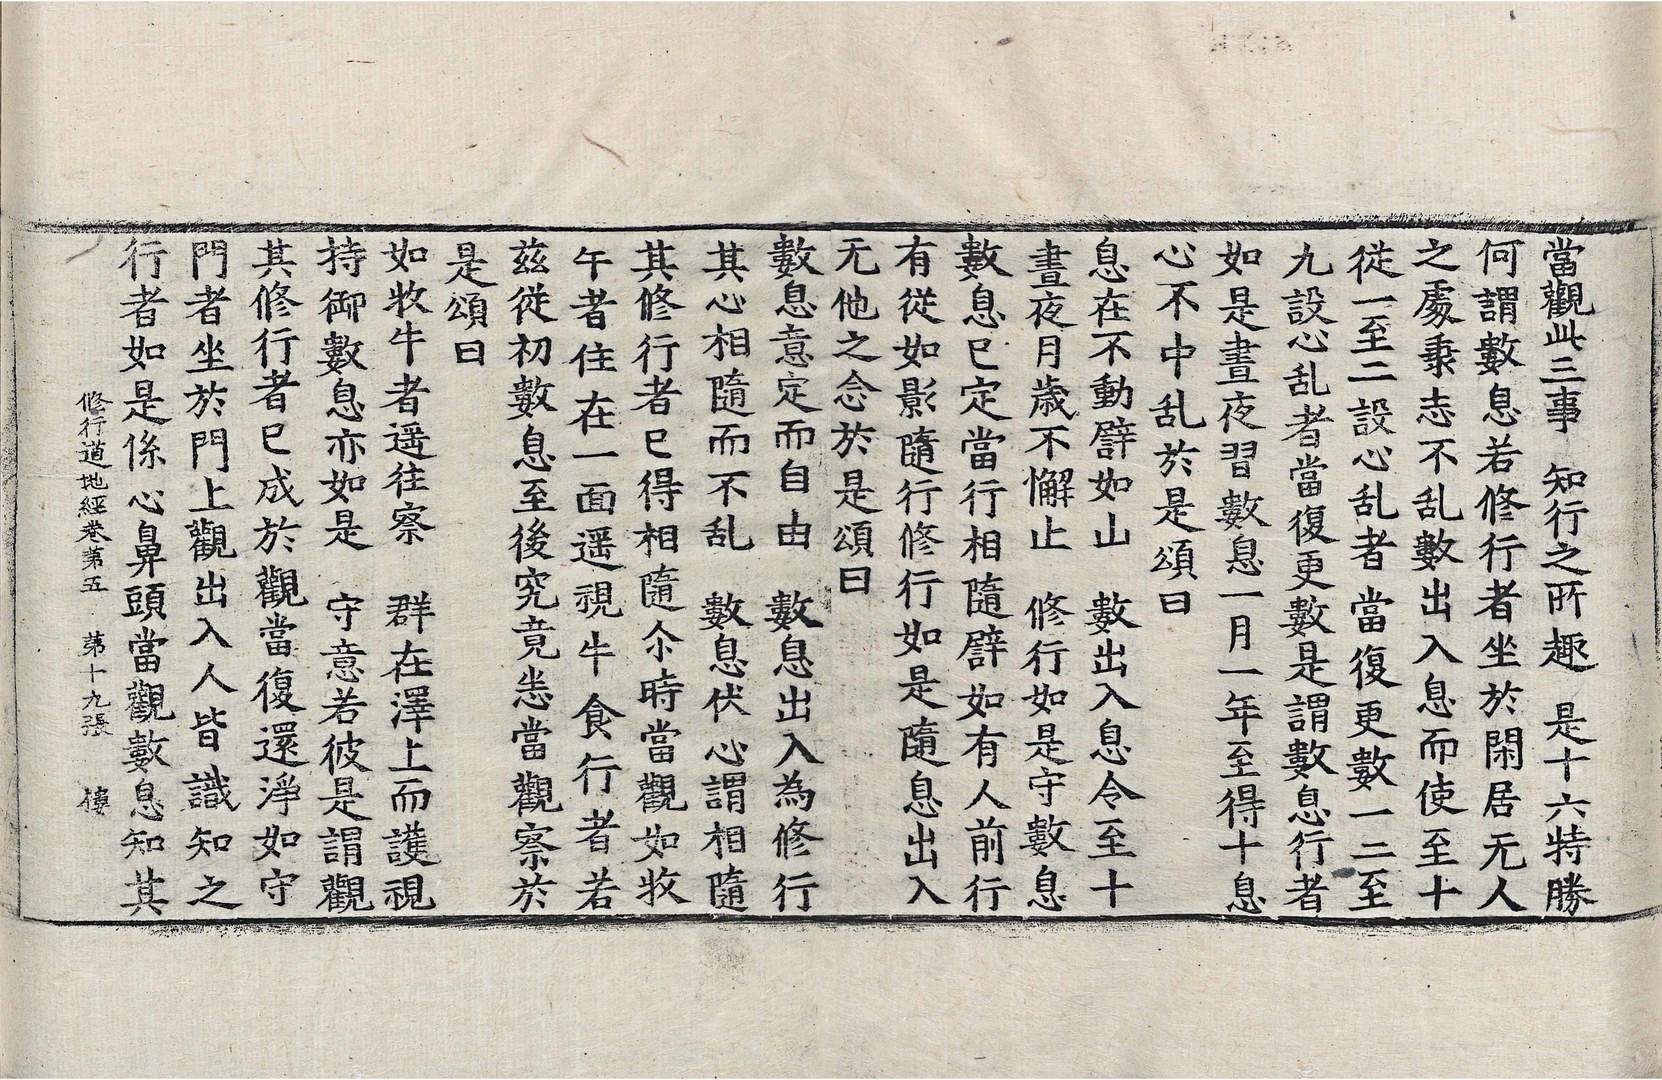 當觀此三事　知行之所趣　是十六特勝
何謂數息若修行者坐於閑居无人
之處秉志不乱數出入息而使至十
従一至二設心乱者當復更數一二至
九設心乱者當復更數是謂數息行者
如是晝夜習數息一月一年至得十息
心不中乱於是頌曰
息在不動譬如山　數出入息令至十
晝夜月歳不懈止　修行如是守數息
數息已定當行相隨譬如有人前行
有従如影隨行修行如是隨息出入
无他之念於是頌曰
數息意定而自由　數息出入為修行
其心相隨而不乱　數息伏心謂相隨
其修行者已得相隨尒時當觀如牧
牛者住在一面遥視牛食行者若
茲従初數息至後究竟悉當觀察於
是頌曰
如牧牛者遥往察　群在澤上而護視
持御數息亦如是　守意若彼是謂觀
其修行者已成於觀當復還淨如守
門者坐於門上觀出入人皆識知之
行者如是係心鼻頭當觀數息知其
修行道地經卷第五　第十九張　樓